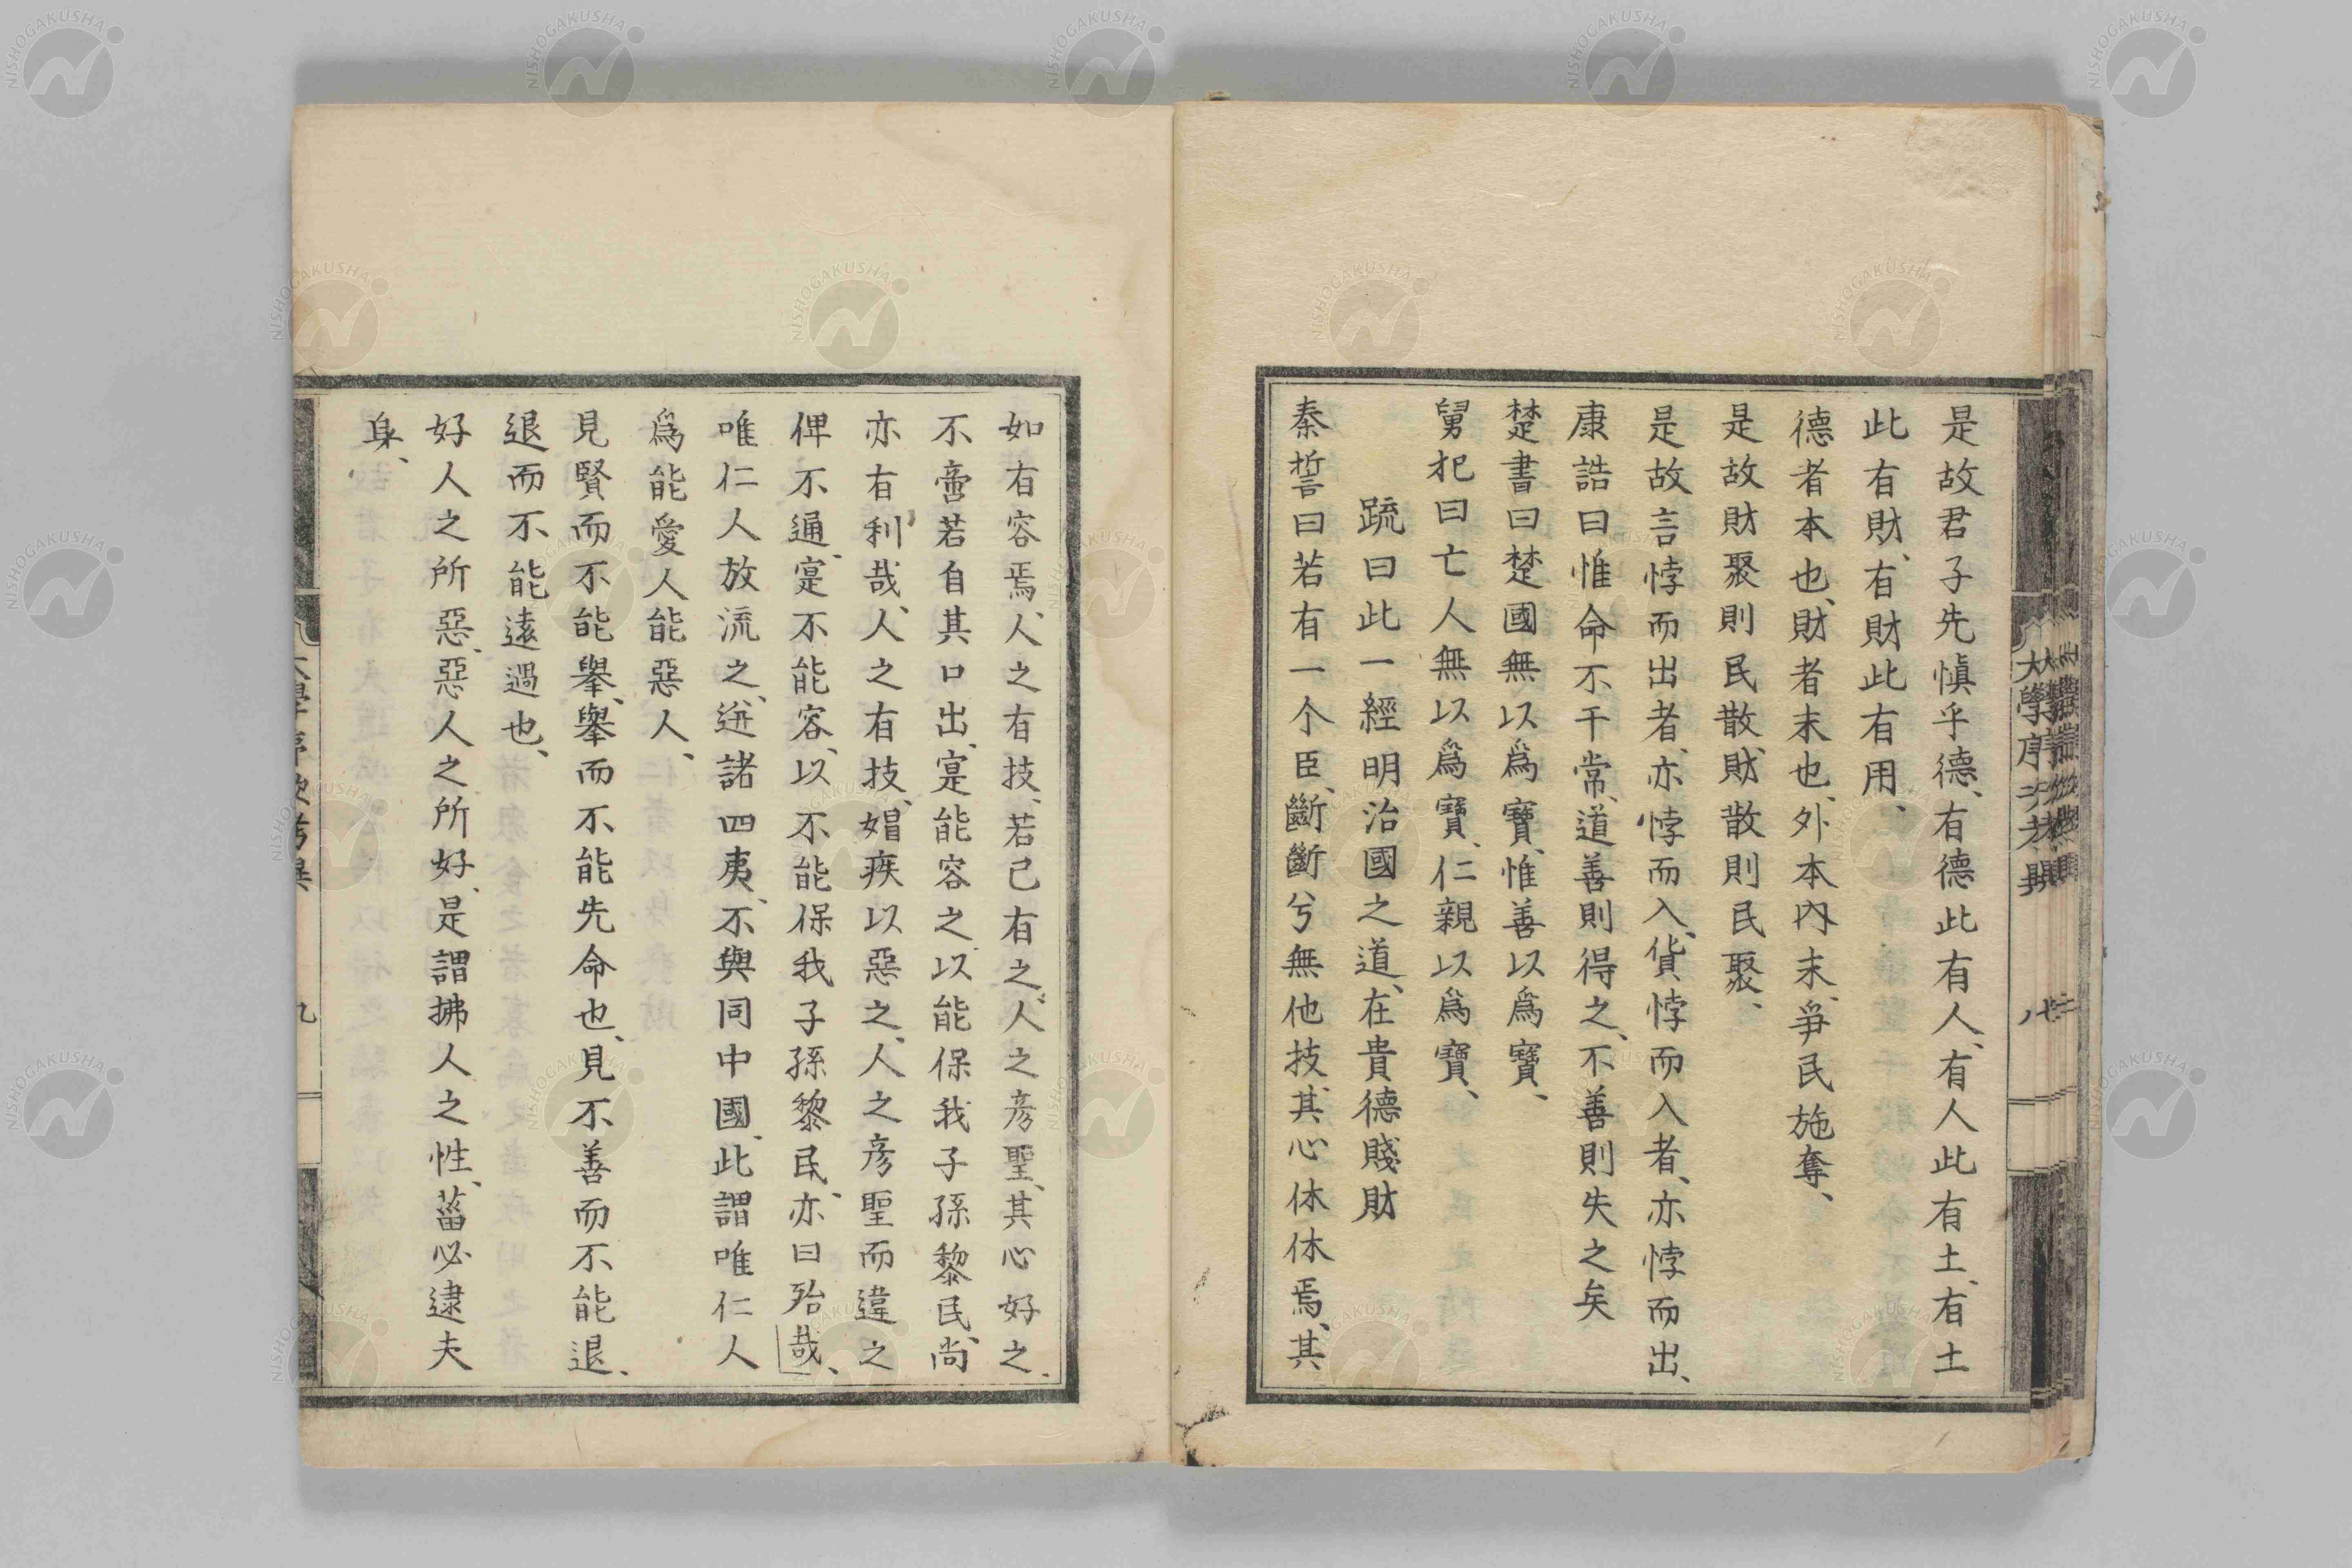 是故君子先愼乎德、有德此有人、有人此有土、有土
此有財、有財此有用、
德者本也、財者末也、外本內末、爭民施奪、
是故財聚則民散、財散則民聚、
是故言悖而出者、亦悖而入、貨悖而入者、亦悖而出、
康誥曰惟命不于常、道善則得之、不善則失之矣
楚書曰楚國無以爲寶、惟善以爲寶、
舅犯曰亡人無以爲寶、仁親以爲寶、
䟽曰此一經明治國之道、在貴德賤財
秦誓曰若有一个臣、斷斷兮無他技、其心休休焉、其
如有容焉、人之有技、若己有之、人之彥聖、其心好之、
不啻若自其口出、寔能容之、以能保我子孫黎民、尚
亦有利哉、人之有技、媢疾以惡之、人之彥聖而違之
俾不通、寔不能容、以不能保我子孫黎民、亦曰殆哉、
唯仁人放流之、迸諸四夷、不與同中國、此謂唯仁人
爲能愛人能惡人、
見賢而不能舉、舉而不能先命也、見不善而不能退、
退而不能遠過也、
好人之所惡、惡人之所好、是謂拂人之性、菑必逮夫
身、
九
八
NISHOGAKUSHA